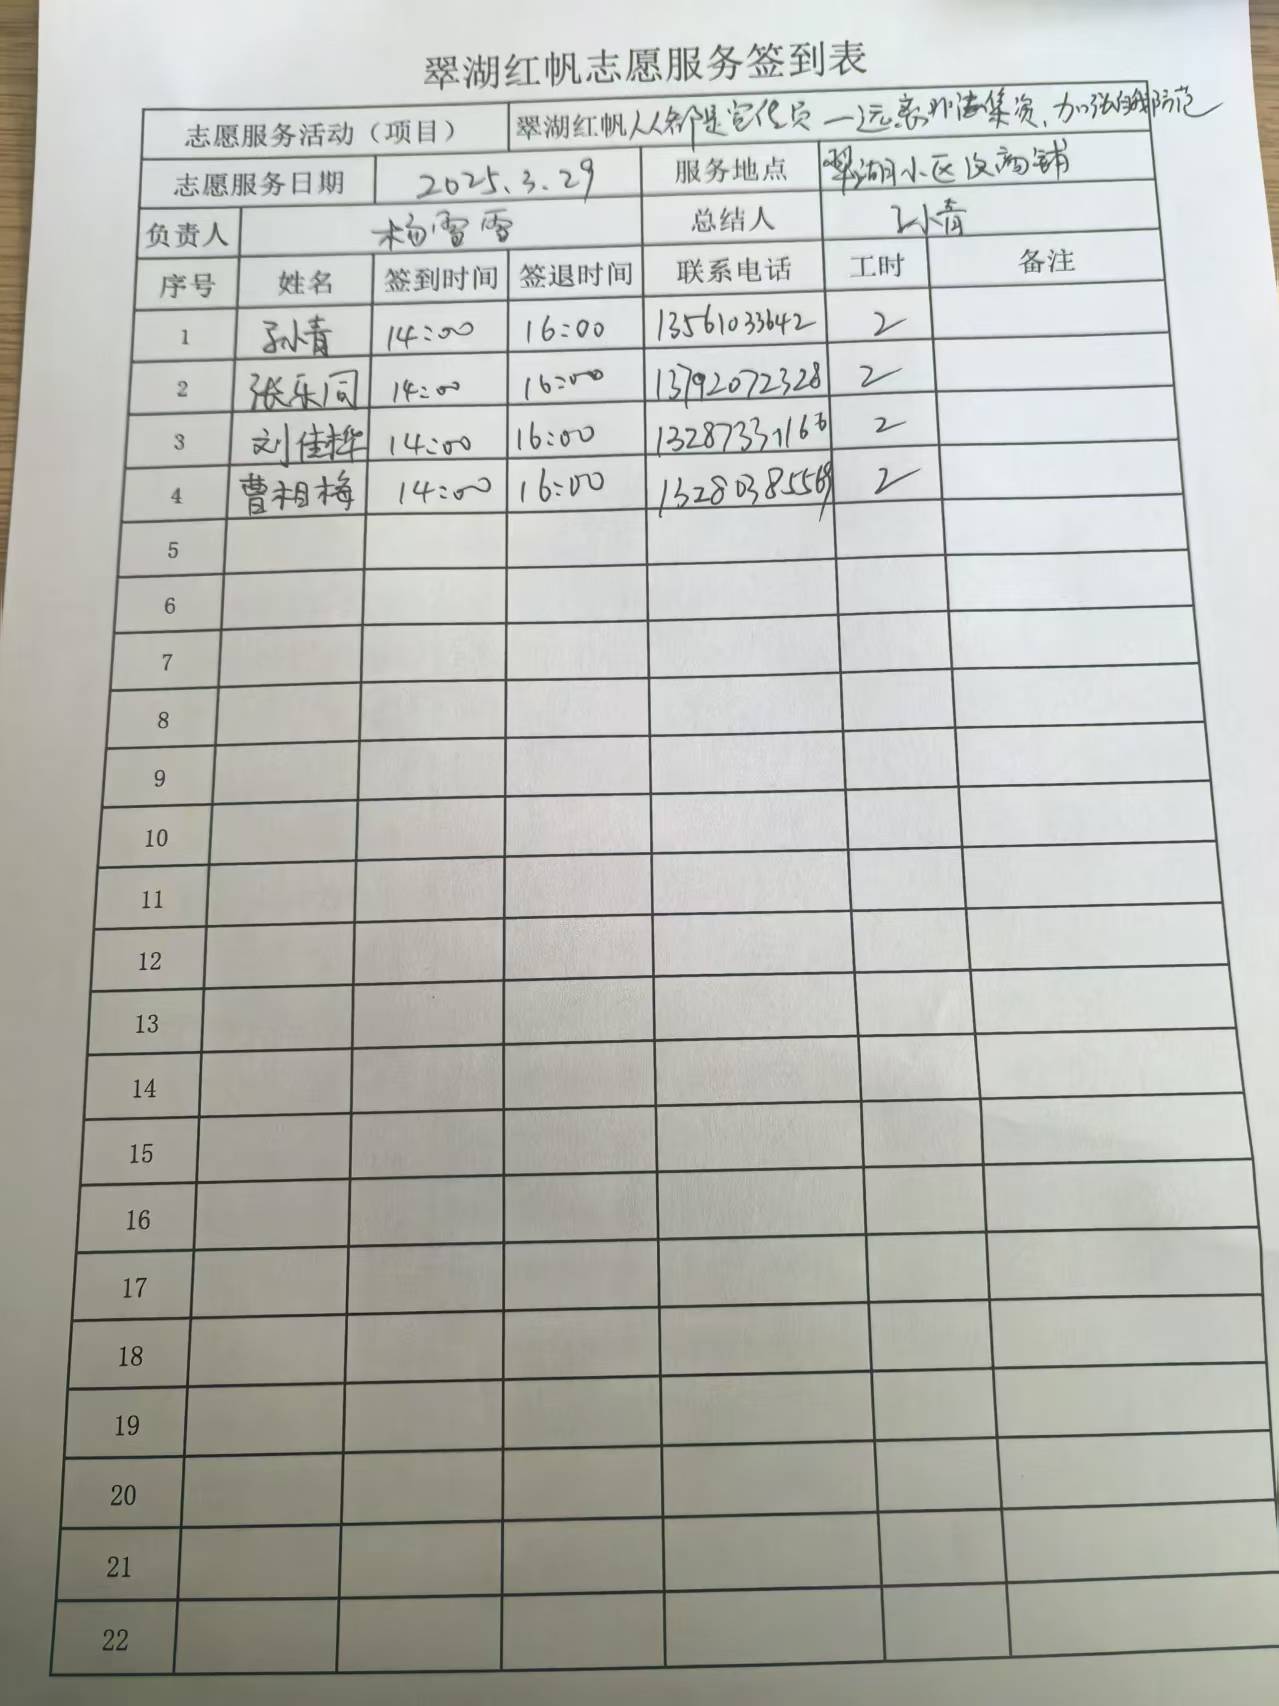 翠湖红帆志愿服务签到表
志愿服务活动（项目） 翠湖红帆人人都是宣传员—远离非法集资、加强自我防范
志愿服务日期 2025.3.29 服务地点 翠湖小区及商铺
负责人 杨雪雪 总结人 孙青
序号 姓名 签到时间 签退时间 联系电话 工时 备注
1 孙青 14:00 16:00 13561033642 2
2 张乐同 14:00 16:00 13792072328 2
3 刘佳桦 14:00 16:00 2
4 曹相梅 14:00 16:00 13280385569 2
5
6
7
8
9
10
11
12
13
14
15
16
17
18
19
20
21
22